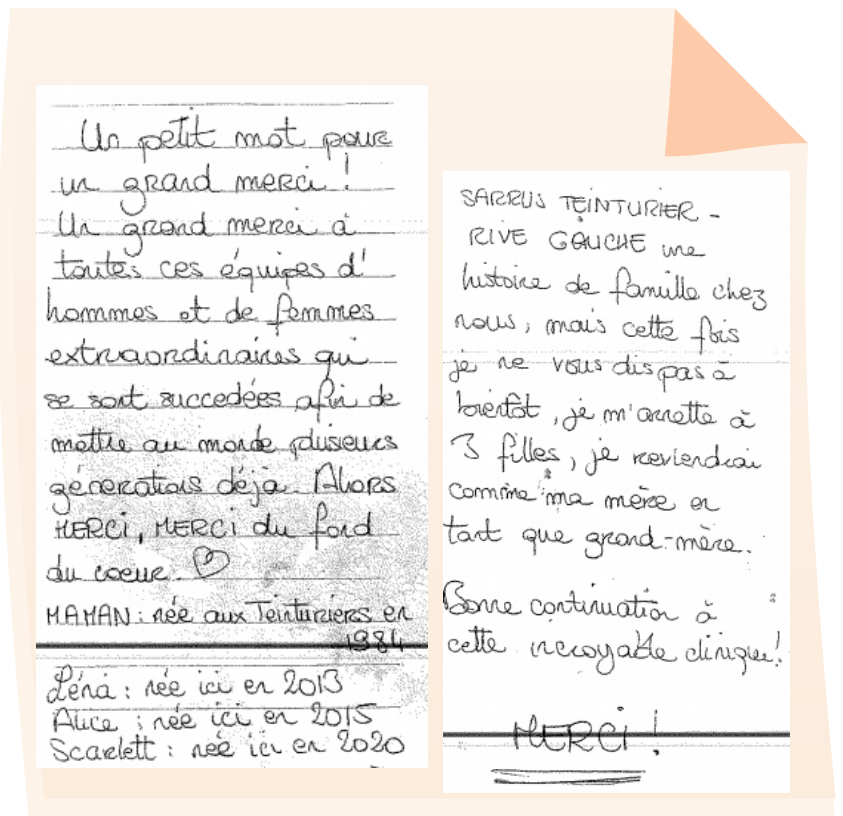 Un petit mot pour
un grand merci !
Un grand merci à
toutes ces équipes d'
hommes et de femmes
extraordinaires qui
se sont succedées afin de
mettre au monde plusieurs
générations déjà. Alors
MERCI, MERCI du fond
du coeur.
MAMAN : née aux Teinturiers en
1984
Léna : née ici en 2013
Alice : née ici en 2015
Scarlett : née ici en 2020
SARRUS TEINTURIER -
RIVE GAUCHE une
histoire de famille chez
nous, mais cette fois
je ne vous dis pas à
bientôt, je m'arrette à
3 filles, je reviendrai
comme ma mère en
tant que grand-mère.
Bonne continuation à
cette incroyable clinique!
MERCI !